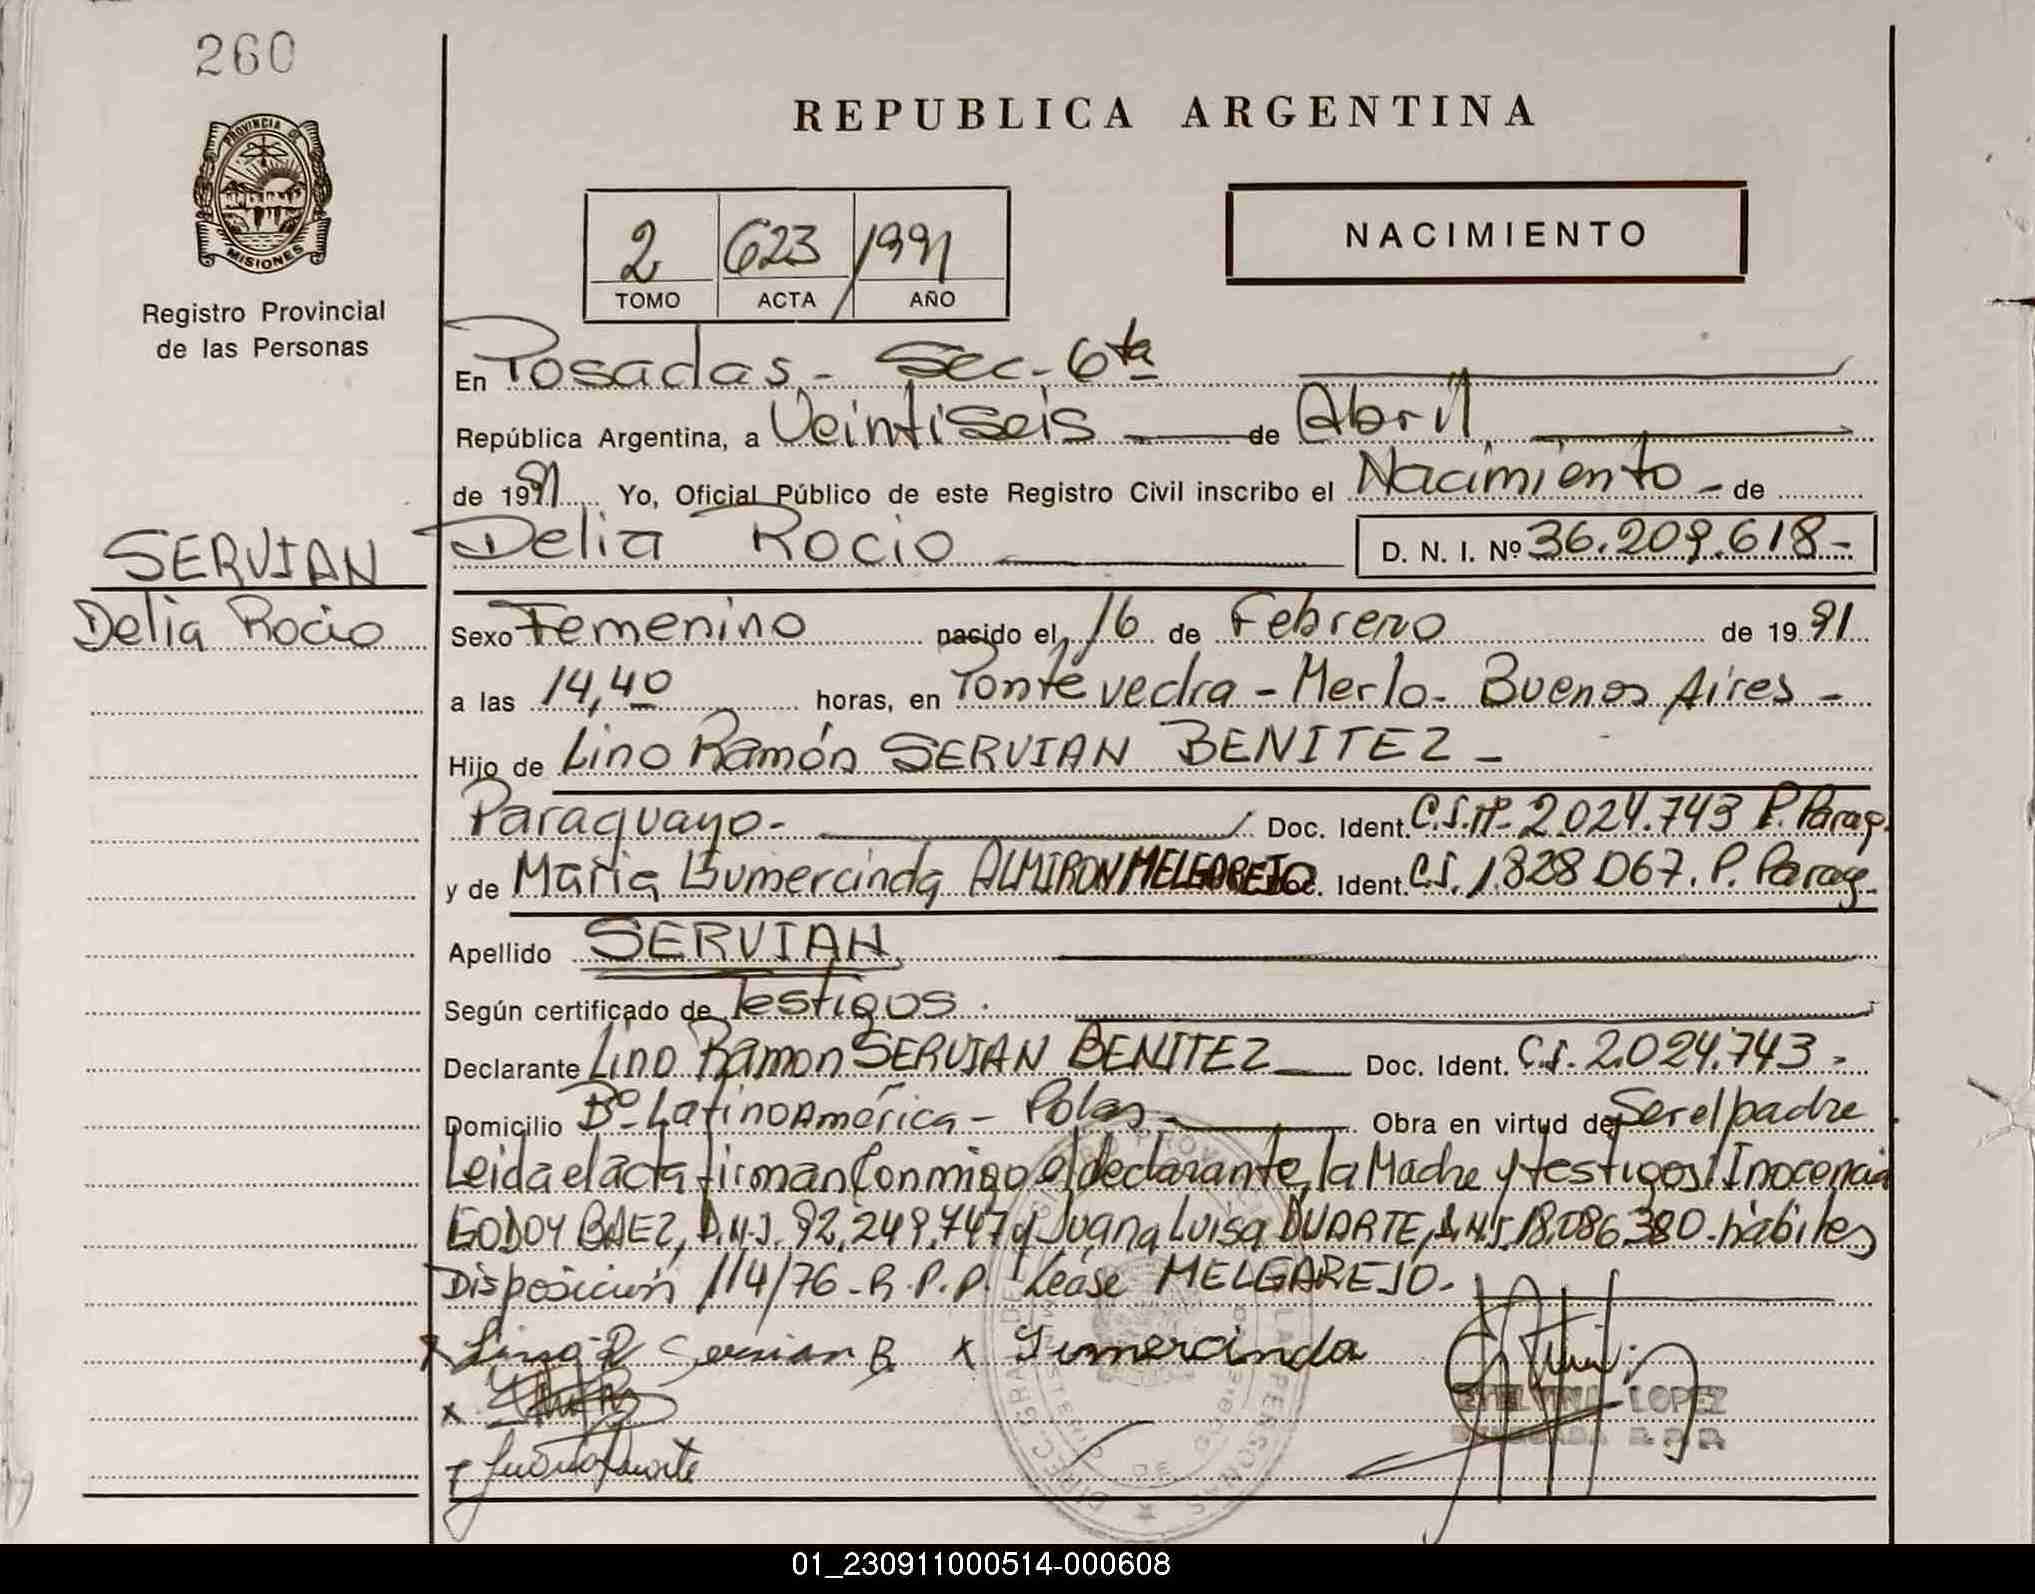 260
REPUBLICA ARGENTINA
PROVINCIA DE
MISIONES
Registro Provincial
de las Personas
NACIMIENTO
2 623 1991
TOMO ACTA AÑO
En Posadas.- Sec-6ta
República Argentina, a Veintiseis de Abril
de 1991 Yo, Oficial Público de este Registro Civil inscribo el Nacimiento - de
SERVIAN
Delia Rocio
Delia Rocio D. N. I. Nº 36.209.618-
Sexo Femenino nacido el 16 de Febrero de 1991
a las 14,40 horas, en Pontevedra - Merlo - Buenos Aires -
Hijo de Lino Ramón SERVIAN BENITEZ -
Paraguayo- Doc. Ident. C.I.Nº 2.024.743 P. Parag.
y de Maria Gumercinda ALMIRON MELGAREJO Doc. Ident. C.I. 1.828.067. P. Parag.
Apellido SERVIAN
Según certificado de Testigos.
Declarante Lino Ramon SERVIAN BENITEZ Doc. Ident. C.I. 2.024.743-
Domicilio Bº Latinoamérica - Pdas. Obra en virtud de Ser el padre
Leida el acta firman Conmigo el declarante, la Madre y testigos: Inocencia
GODOY BAEZ, D.N.I. 92.249.747 y Juana Luisa DUARTE, D.N.I. 18.086.380 - hábiles
Disposición 114/76 - R.P.P. Léase MELGAREJO.
x Lino R Servian B. x Gumercinda
x
LOPEZ
R.P.P.
Juana Duarte
01_230911000514-000608